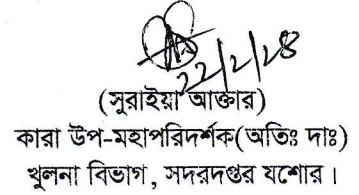 22/2/28
(সুরাইয়া আক্তার)
কারা উপ-মহাপরিদর্শক(অতিঃ দাঃ)
খুলনা বিভাগ, সদরদপ্তর যশোর।